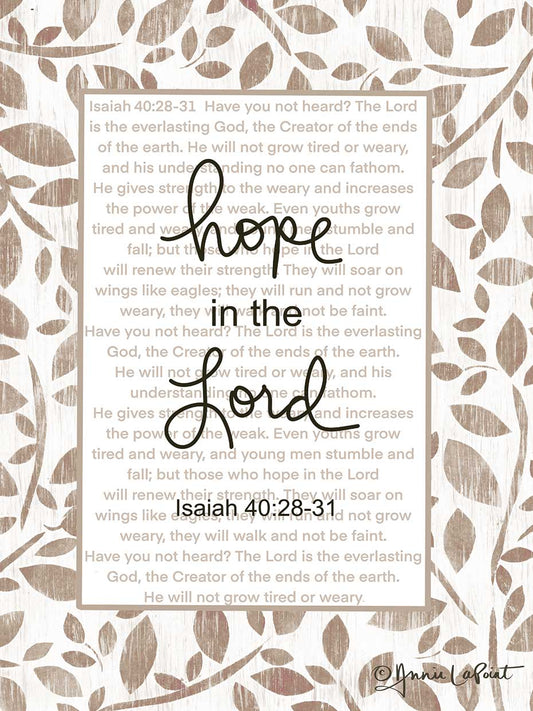 hope
in the
Lord
Isaiah 40:28-31
Isaiah 40:28-31 Have you not heard? The Lord
is the everlasting God, the Creator of the ends
of the earth. He will not grow tired or weary,
and his understanding no one can fathom.
He gives strength to the weary and increases
the power of the weak. Even youths grow
tired and weary, and young men stumble and
fall; but those who hope in the Lord
will renew their strength. They will soar on
wings like eagles; they will run and not grow
weary, they will walk and not be faint.
Have you not heard? The Lord is the everlasting
God, the Creator of the ends of the earth.
He will not grow tired or weary, and his
understanding no one can fathom.
He gives strength to the weary and increases
the power of the weak. Even youths grow
tired and weary, and young men stumble and
fall; but those who hope in the Lord
will renew their strength. They will soar on
wings like eagles; they will run and not grow
weary, they will walk and not be faint.
Have you not heard? The Lord is the everlasting
God, the Creator of the ends of the earth.
He will not grow tired or weary.
©Annie LaPoint